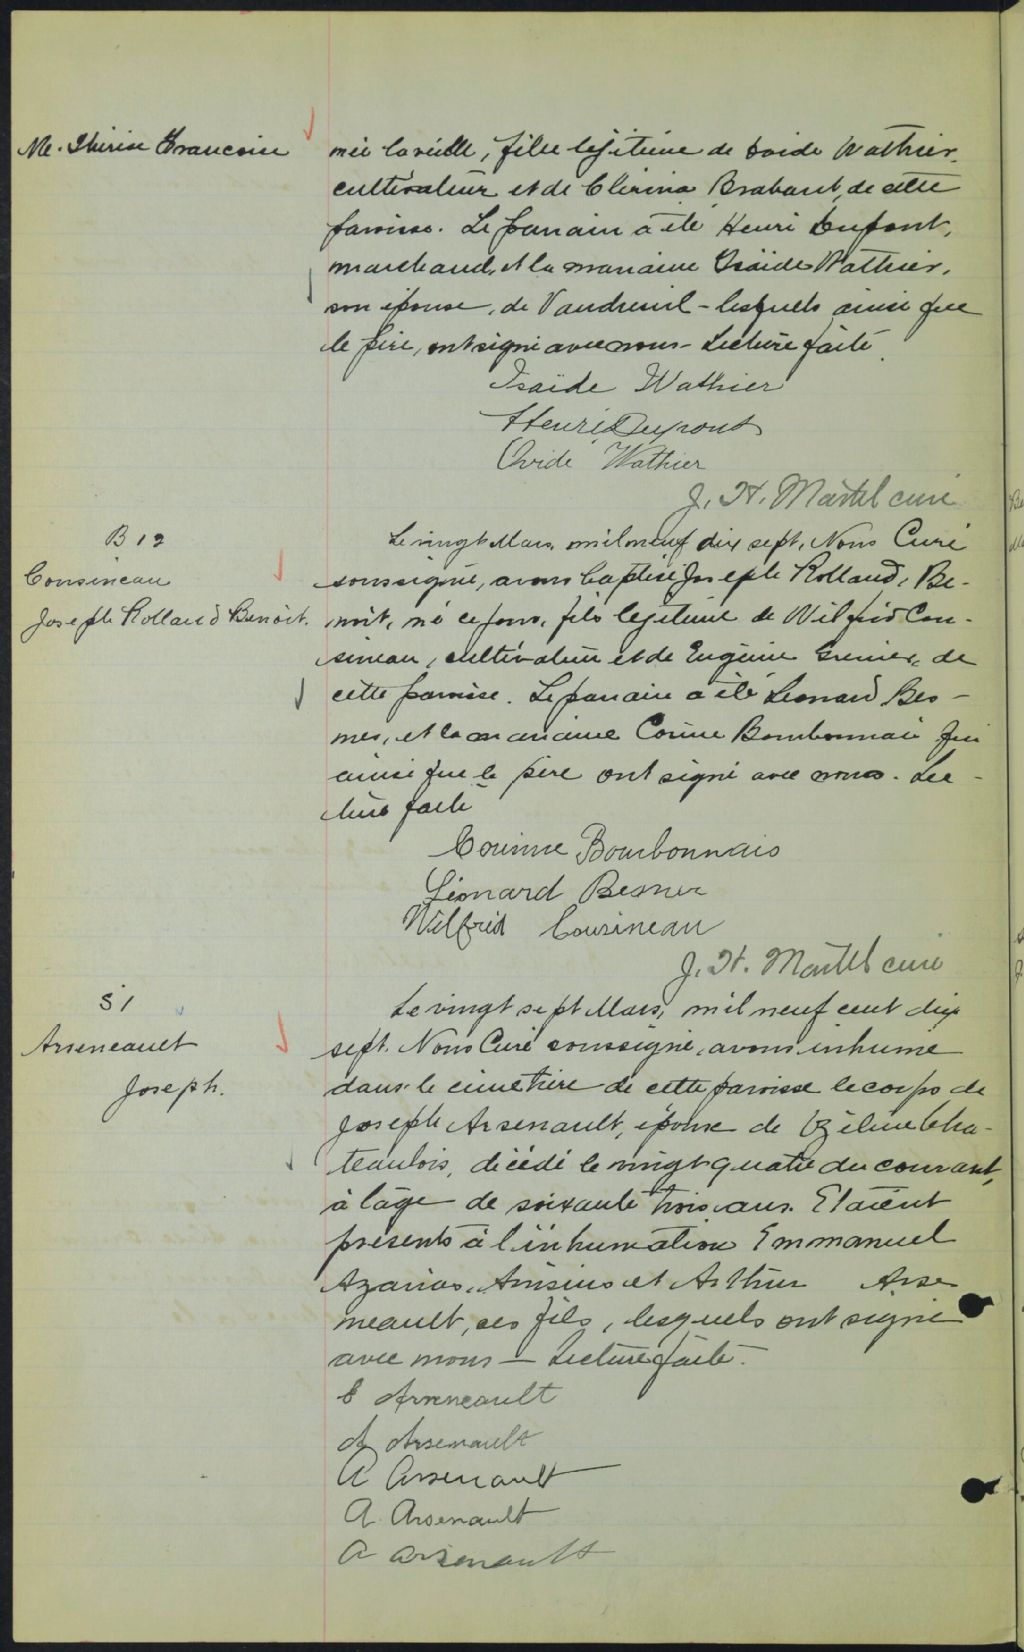 M. Thérèse Francoise
née la veille, fille légitime de Ovide Wathier
cultivateur et de Clérina Brabant, de cette
paroisse. Le parrain a été Henri Dupont,
marchand, et la marraine Isaïde Wathier,
son épouse, de Vaudreuil - lesquels ainsi que
le père, ont signé avec nous - Lecture faite.
Isaïde Wathier
Henri Dupont
Ovide Wathier
J. H. Martel curé
B 12
Cousineau
Joseph Rolland Benoit.
Le vingt Mars, mil neuf dix sept, Nous Curé
soussigné, avons baptisé Joseph Rolland, Be-
noit, né ce jour, fils légitime de Wilfrid Cou-
sineau, cultivateur et de Eugénie Grenier, de
cette paroisse. Le parrain a été Leonard Bes-
ner, et la marraine Corine Bourbonnais qui
ainsi que le père ont signé avec nous. Lec-
ture faite
Corinne Bourbonnais
Léonard Besner
Wilfrid Cousineau
J. H. Martel curé
S 1
Arseneault
Joseph.
Le vingt sept Mars, mil neuf cent dix
sept. Nous Curé soussigné, avons inhumé
dans le cimetière de cette paroisse le corps de
Joseph Arsenault, époux de Zéline Cha-
teaulois, décédé le vingt quatre du courant,
à l'âge de soixante trois ans. Etaient
présents à l'inhumation Emmanuel
Azarias, et Arthur Arse
neault, ses fils, lesquels ont signé
avec nous - Lecture faite.
E Arseneault
A Arsenault
A Arsenault
A. Arsenault
A Arsenault